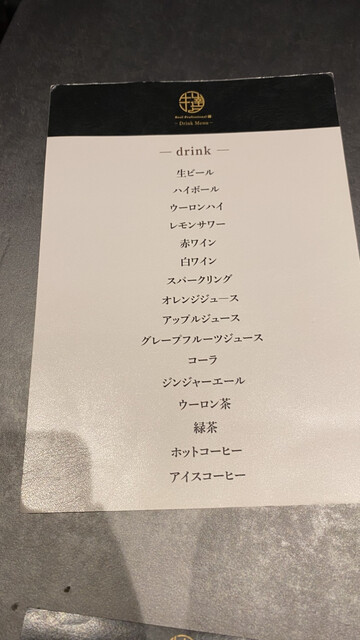 Beef Professional
— Drink Menu —
— drink —
生ビール
ハイボール
ウーロンハイ
レモンサワー
赤ワイン
白ワイン
スパークリング
オレンジジュース
アップルジュース
グレープフルーツジュース
コーラ
ジンジャーエール
ウーロン茶
緑茶
ホットコーヒー
アイスコーヒー